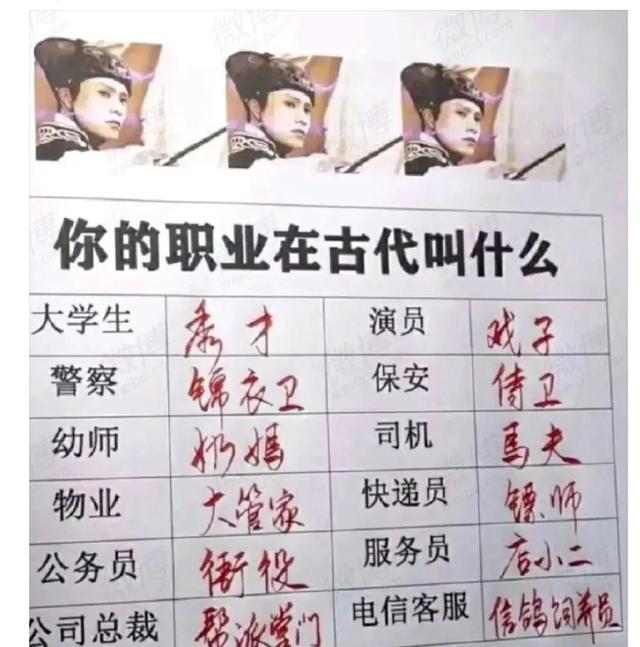 你的职业在古代叫什么
大学生 秀才 演员 戏子
警察 锦衣卫 保安 侍卫
幼师 奶媽 司机 馬夫
物业 大管家 快递员 镖师
公务员 衙役 服务员 店小二
公司总裁 帮派掌门 电信客服 信鸽饲养员